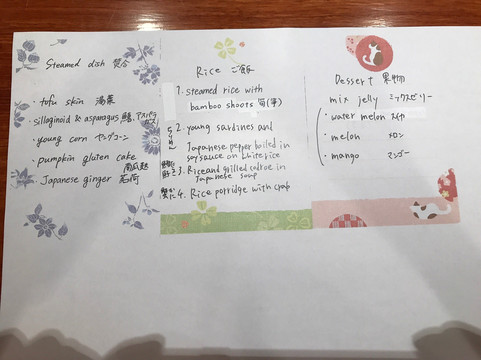 Steamed dish 焚合
・tofu skin 湯葉
・sillaginoid & asparagus 鱚、アスパラガス
・young corn ヤングコーン
・pumpkin gluten cake
南瓜麸
・Japanese ginger 茗荷
Rice ご飯
1. steamed rice with
bamboo shoots 筍(笋)
2. young sardines and
Japanese pepper boiled in
soy sauce on white rice
3. Rice and grilled in
Japanese soup
4. Rice porridge with crab
Dessert 果物
mix jelly ミックスゼリー
・water melon スイカ
・melon メロン
・mango マンゴー